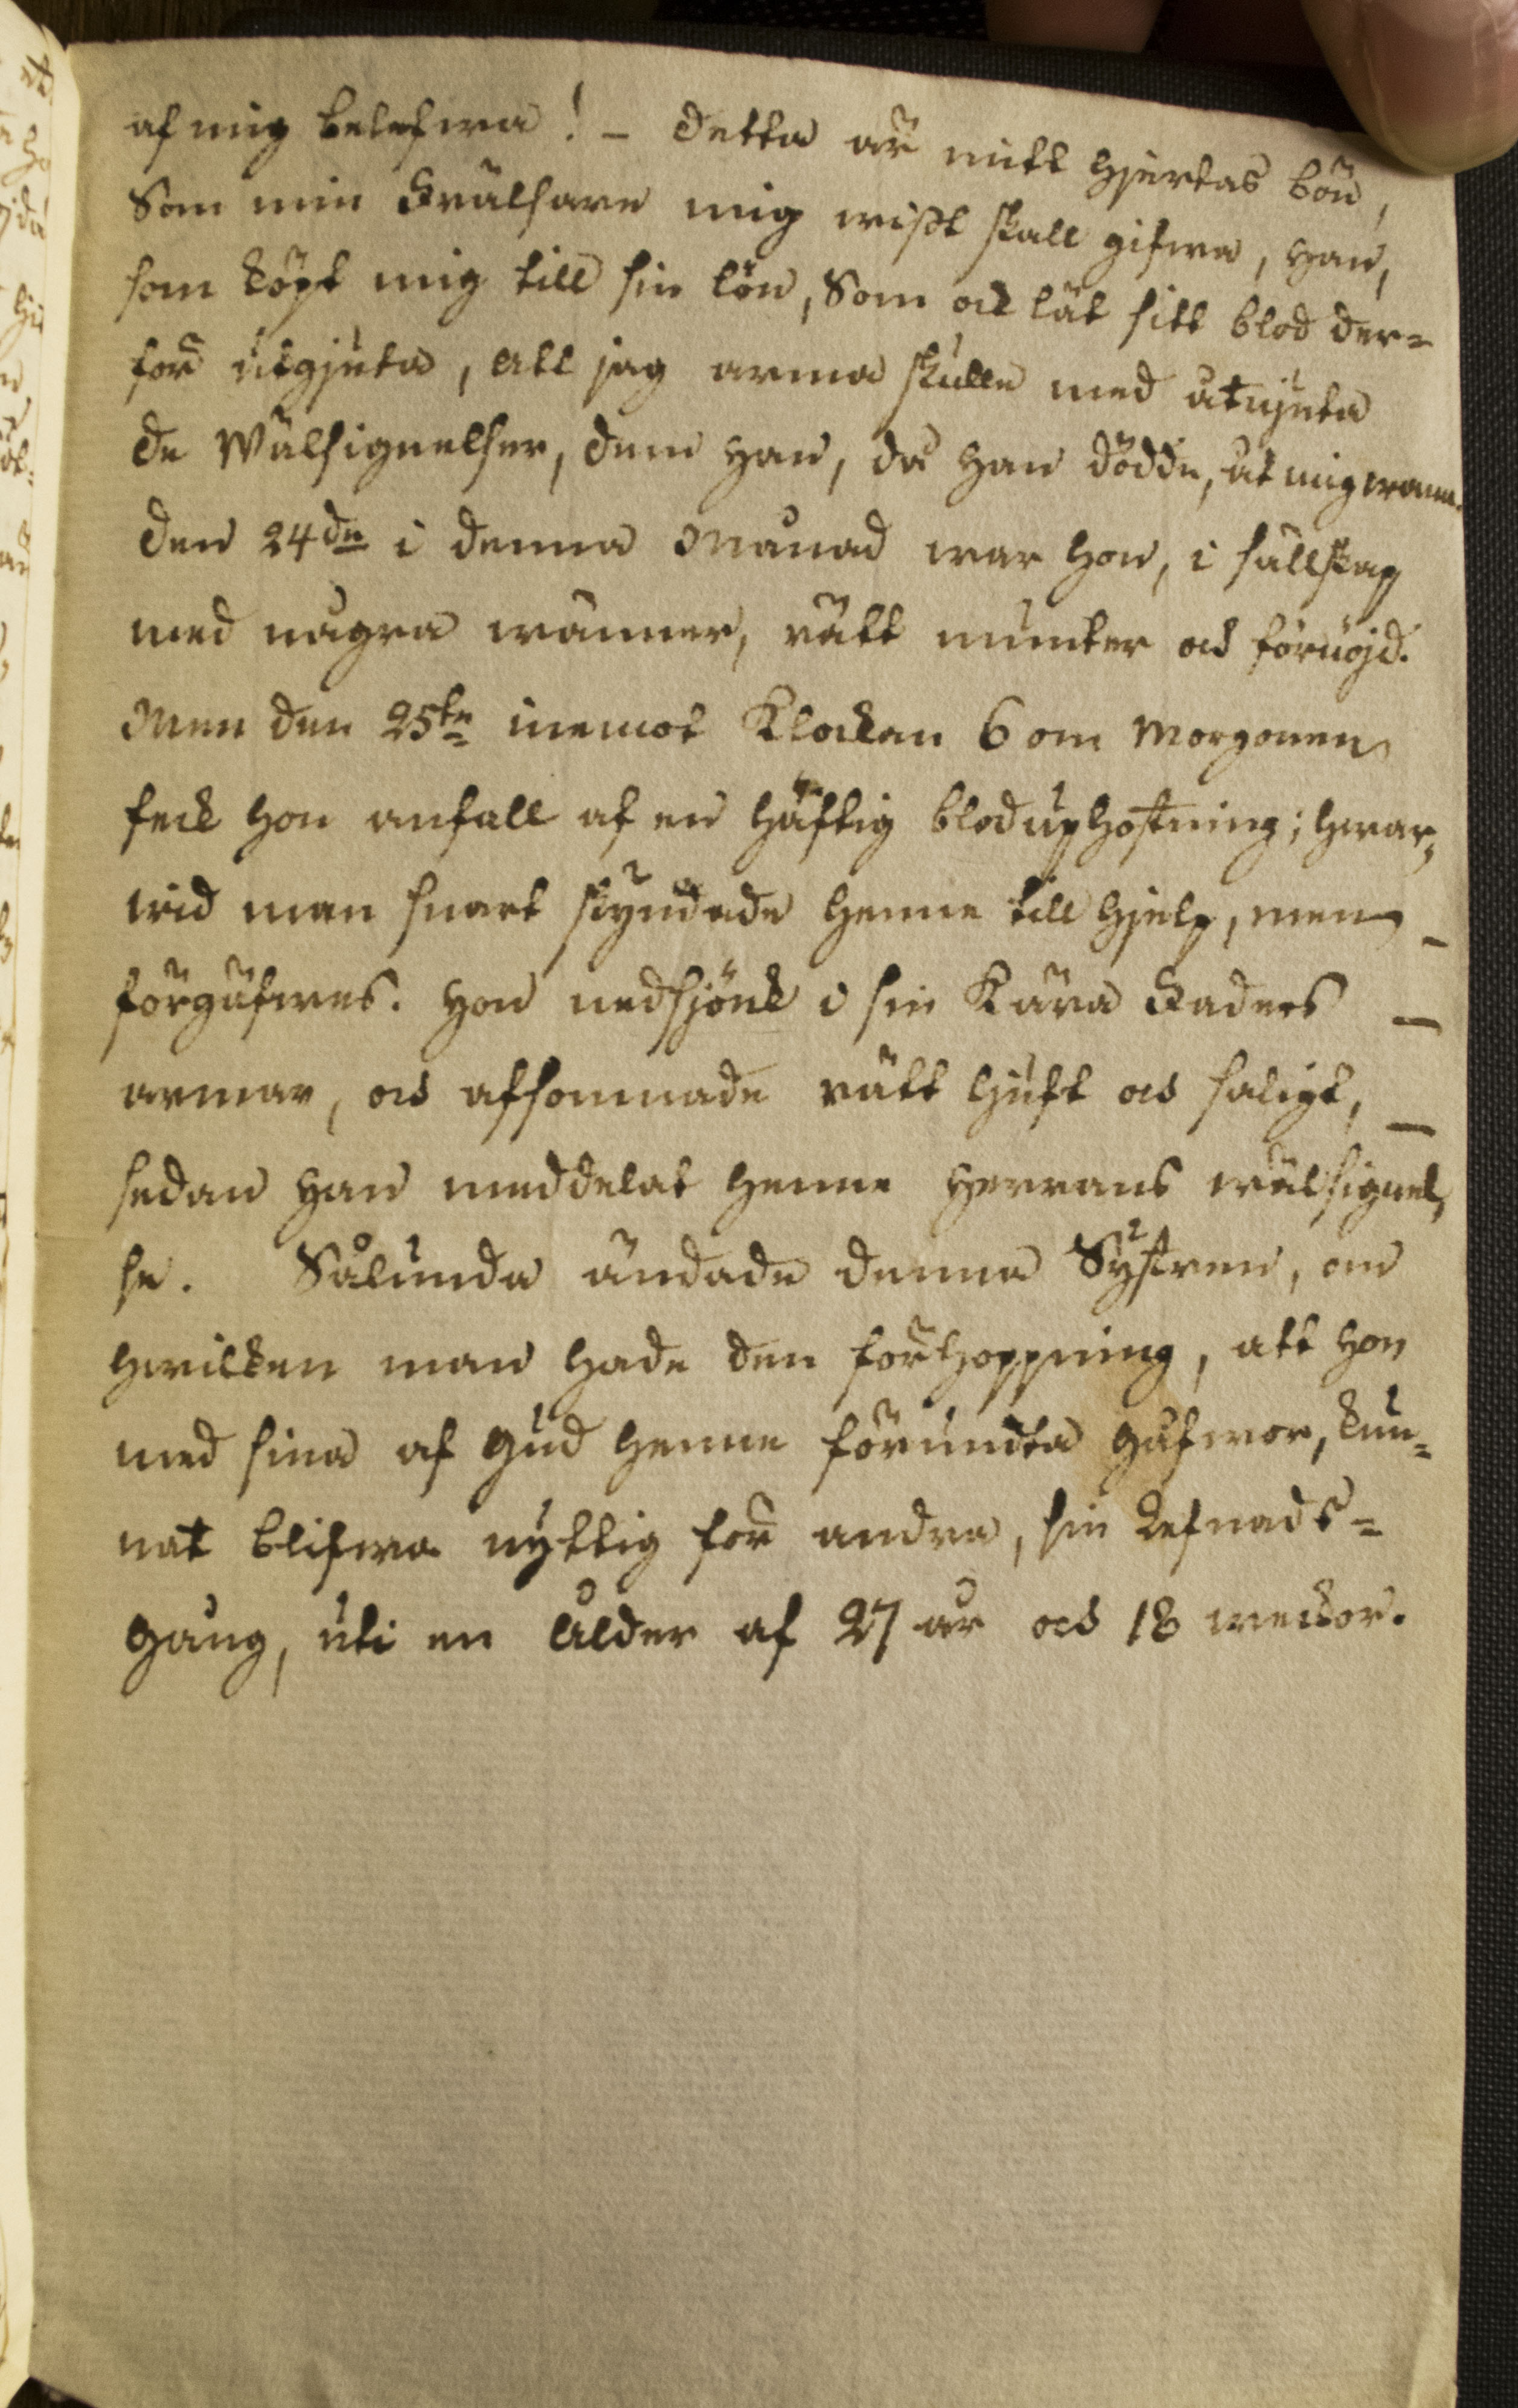 af mig belefwa! – Detta är mitt hjertas bön,
Som min Frälsare mig wißt skall gifwa, Han,
som köpt mig till sin lön, Som ock lät sitt blod der=
för utgjuta, Att jag arma skulle med åtnjuta
de Wälsignelser, dem Han, då Han dödde, åt mig wann.
Den 24de i denna Månad war hon, i sällskap
med några wänner, rätt munter och förnöjd.
Men den 25te inemot Klockan 6 om Morgonen
feck hon anfall af en häftig bloduphostning; hwar,
wid man snart skyndade henne till hjelp, men –
förgäfwes. Hon nedsjönk i sin Kära Faders –
armar, och afsomnade rätt ljuft och saligt, –
sedan Han meddelat henne Herrans wälsignel,
se. Sålunda ändade denna Systren, om
hwilken man hade den förhoppning, att hon
med sina af Gud henne förundta gåfwor, kun=
nat blifwa nyttig för andra, sin Lefnads=
gång, uti en Ålder af 27 år och 18 weckor.